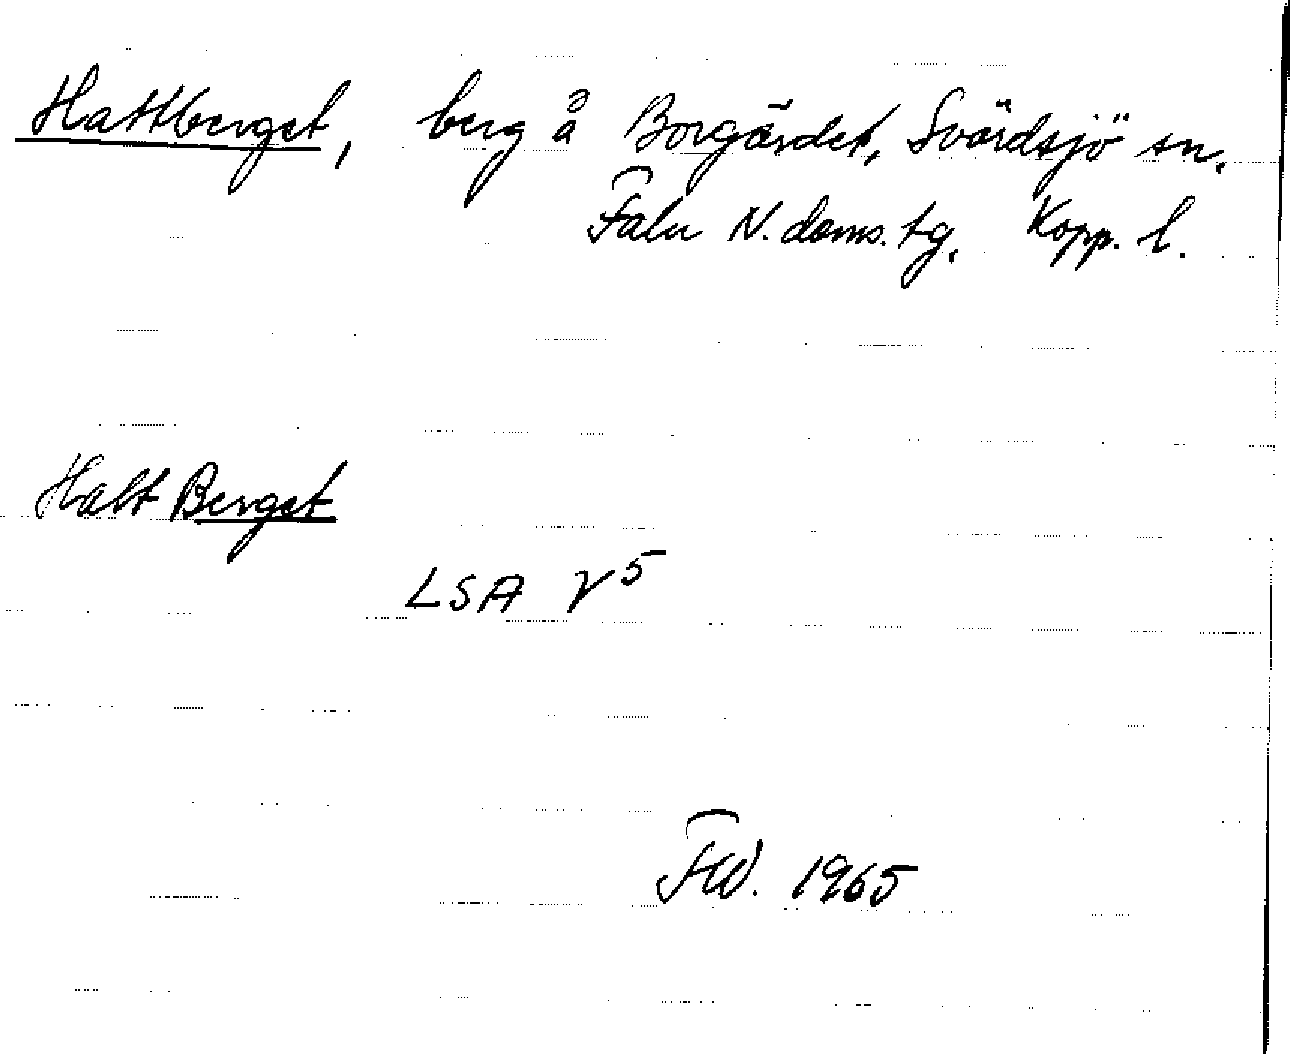 Hattberget, berg å Borgärdet, Svärdsjö sn.
Falu N. doms. tg. Kopp. l.
Hatt Berget
LSA V5
FW. 1965